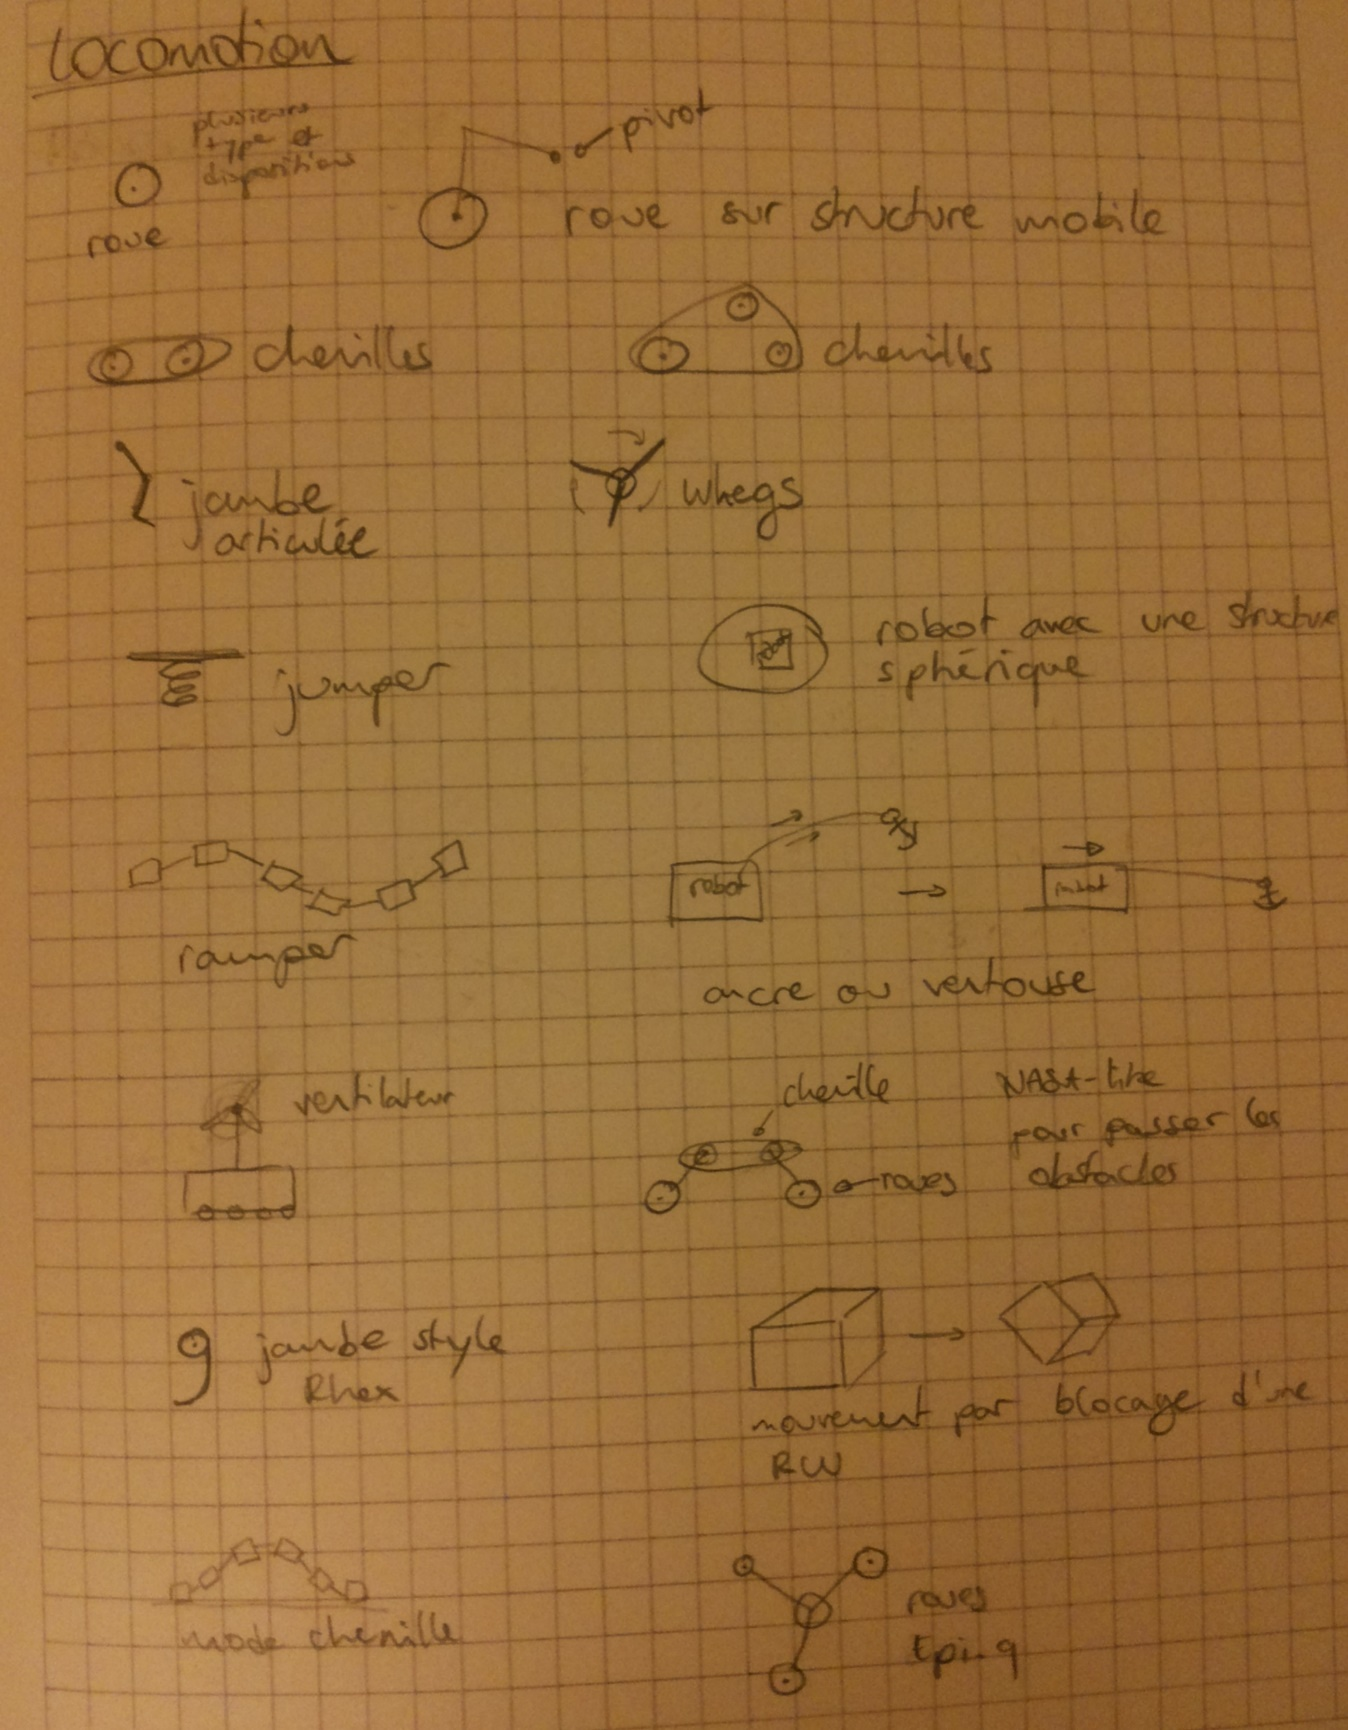 Locomotion
plusieurs
type et
dispositions
pivot
roue
roue sur structure mobile
chenilles
chenilles
jambe
articulée
whegs
jumper
robot avec une structure
sphérique
ramper
robot
robot
ancre ou ventouse
ventilateur
chenille
roues
NASA-like
pour passer les
obstacles
jambe style
Rhex
mouvement par blocage d'une
RW
mode chenille
roues